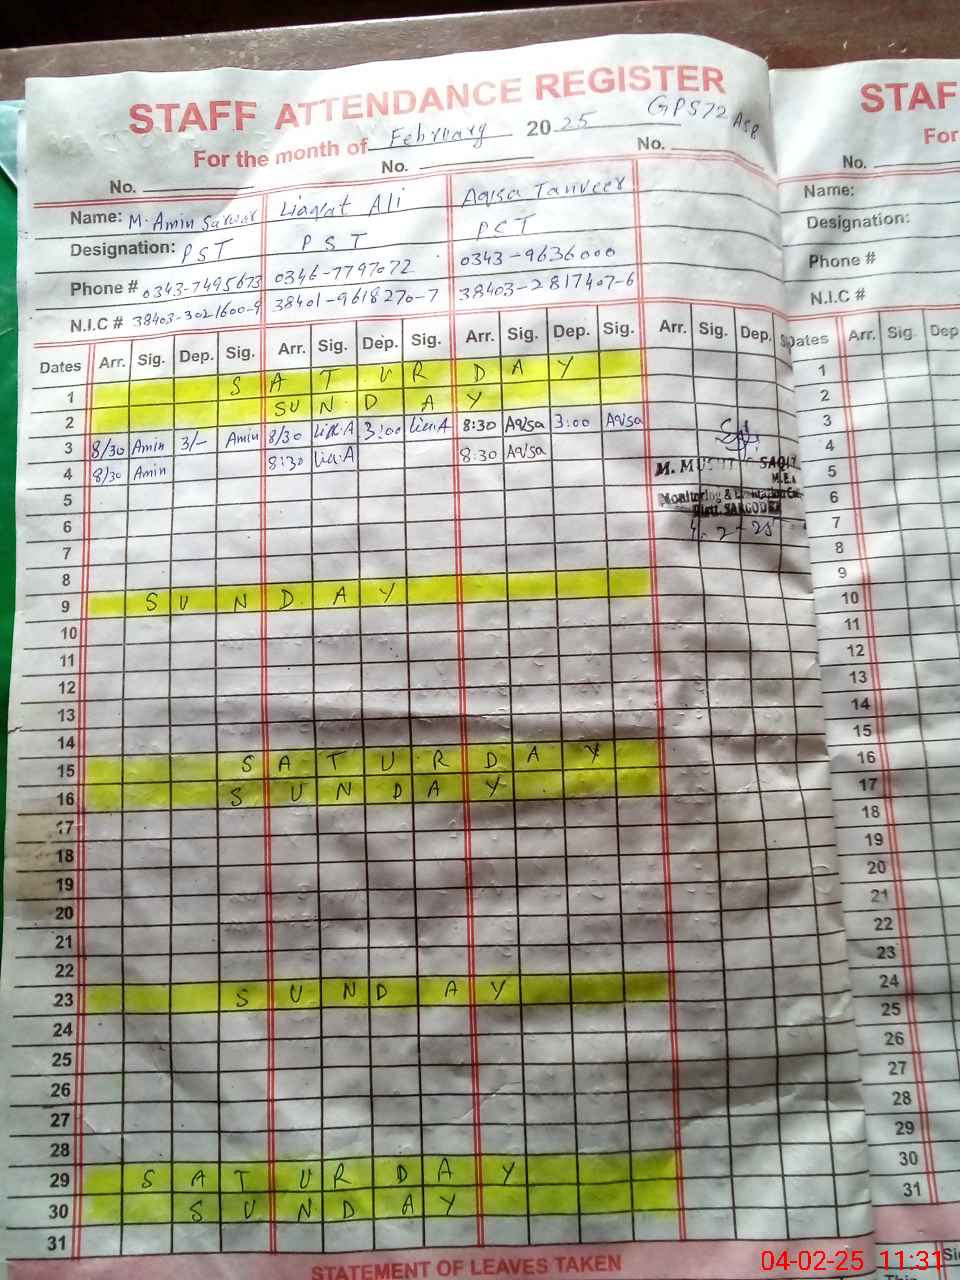 STAFF ATTENDANCE REGISTER
For the month of February 2025 GPS 72 ASB
No. No. No.
Name: M. Amin Sarwar Liaqat Ali Aqsa Tanveer
Designation: PST PST PCT
Phone # 0343-7495673 0346-7797072 0343-9636000
N.I.C # 38403-3021600-9 38401-9618270-7 38403-2817407-6
Dates Arr. Sig. Dep. Sig. Arr. Sig. Dep. Sig. Arr. Sig. Dep. Sig. Arr. Sig. Dep. Sig.
1 SATURDAY
2 SUNDAY
3 8/30 Amin 3/- Amin 8/30 Lia.A 3:00 Lia.A 8:30 Aqsa 3:00 Aqsa
4 8/30 Amin 8:30 Lia.A 8:30 Aqsa
M. SAQI
M.E.A
Monitoring &
Distt. SARGODHA
4-2-25
5
6
7
8
9 SUNDAY
10
11
12
13
14
15 SATURDAY
16 SUNDAY
17
18
19
20
21
22
23 SUNDAY
24
25
26
27
28
29 SATURDAY
30 SUNDAY
31
STATEMENT OF LEAVES TAKEN
STAF
For
No.
Name:
Designation:
Phone #
N.I.C #
Dates Arr. Sig. Dep
1
2
3
4
5
6
7
8
9
10
11
12
13
14
15
16
17
18
19
20
21
22
23
24
25
26
27
28
29
30
31
Sig
This
04-02-25 11:31